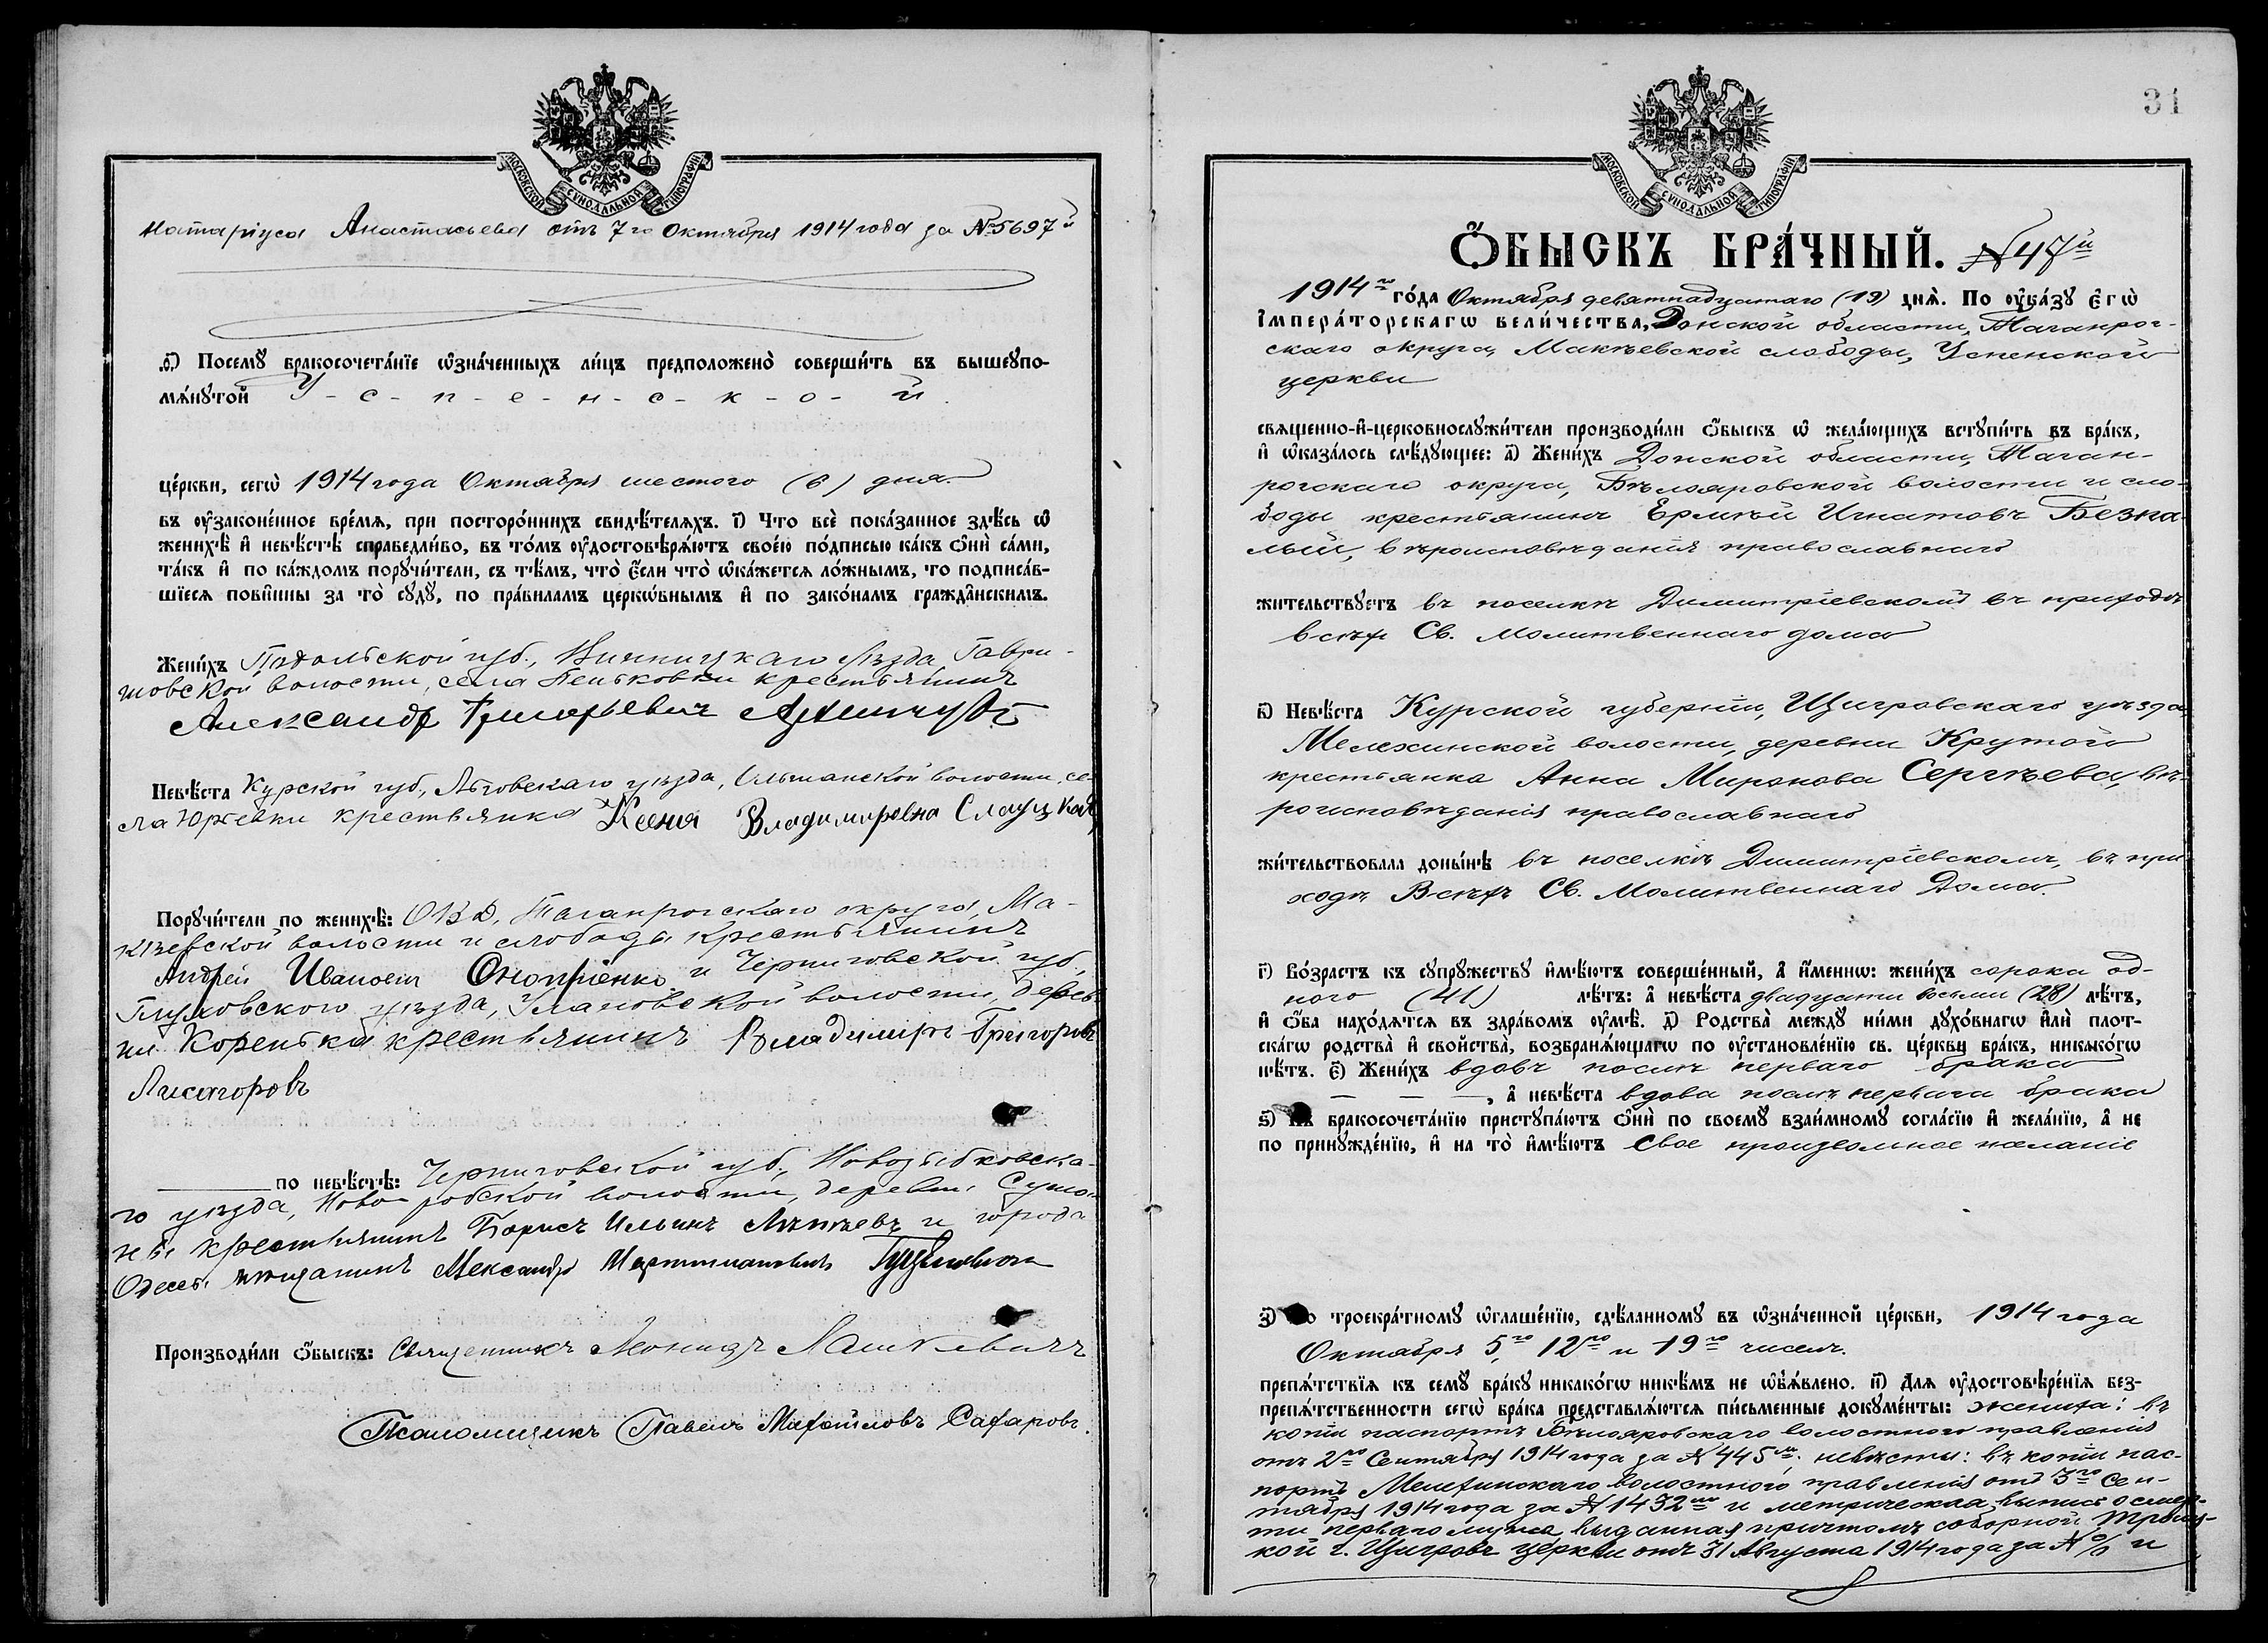 МОСКОВСКОЙ СѴНОДАЛЬНОЙ ТИПОГРАФІИ
Нотаріуса Анастасьева отъ 7го Октября 1914 года за №5697й
ѳ҃) Посемꙋ̀ бракосочета́нїе ѡ҆зна́ченныхъ ли́цъ предположено̀ соверши́ть въ вышеꙋпо-
мѧ́нꙋтой У - с - п - е - н - с - к - о - й
це́ркви, сегѡ̀ 1914 года Октября шестого (6) дня
въ ᲂу҆законе́нное вре́мѧ, при посторо́ннихъ свидѣ́телѧхъ. і҃) Что̀ всѐ пока́занное здѣ́сь ѡ҆
женихѣ̀ и҆ невѣ́стѣ справедли́во, въ то́мъ ᲂу҆достовѣрѧ́ютъ свое́ю по́дписью ка́къ ѻ҆нѝ са́ми,
та́къ и҆ по ка́ждомъ порꙋчи́тели, съ тѣ́мъ, что̀ є҆́сли что̀ ѡ҆ка́жетсѧ ло́жнымъ, то подписа́в-
шїесѧ пови́нны за то̀ сꙋдꙋ̀, по пра́виламъ церко́внымъ и҆ по зако́намъ гражда́нскимъ.
Жени́хъ Подольской губ., Винницкаго уѣзда, Гаври-
шовской волости, села Пеньковки крестьянинъ
Александр Григорьевич
Невѣ́ста Курской губ., Льговскаго уѣзда, Ольшанской волости, се-
ла Юрьевки крестьянка Ксенія Владимировна Слауцкая
Порꙋчи́тели по женихѣ̀: О.В.Д, Таганрогскаго округа, Ма-
кѣевской волости и слободы крестьянинъ
Андрей Ивановичъ Оноприенко и Черниговской губ,
Глуховского уѣзда, волости, дерев-
ни Кореньки крестьянинъ Владимиръ Григоровъ
Лисагоровъ
по невѣ́стѣ: Черниговской губ., Новозыбковска-
го уѣзда, волости, деревни
крестьянинъ Борисъ Ильинъ и города
Одессы мѣщанинъ Александр
Производи́ли ѻ҆́быскъ: Священникъ Леонидъ Лашкевичъ
Псаломщикъ Павелъ Михайловъ Сафаровъ.
31
МОСКОВСКОЙ СѴНОДАЛЬНОЙ ТИПОГРАФІИ
Ѻ҆́БЫСКЪ БРА́ЧНЫЙ. №47й
1914го го́да Октября девятнадцатаго (19) днѧ̀. По ᲂу҆ка́зꙋ є҆гѡ̀
і҆мпера́торскагѡ вели́чества, Донской области, Таганрог-
скаго округа, Макѣевской слободы, Успенской
церкви
свѧщенно-и҆-церковнослꙋжи́тели производи́ли ѻ҆́быскъ ѡ҆ жела́ющихъ вступи́ть въ бра́къ,
и҆ ѡ҆каза́лось слѣ́дꙋющее: а҃) Жени́хъ Донской области, Таган-
рогскаго округа, Бѣлояровской волости и сло-
боды крестьянинъ Ермѣй Игнатовъ Безпа-
лый, вѣроисповѣданія православнаго
жи́тельствꙋетъ въ поселкѣ Димитріевскомъ въ приходѣ
всѣхъ Св. Молитвеннаго дома
в҃) Невѣ́ста Курской губерніи, Щигровскаго уѣзда,
Мелехинской волости, деревни Крутого
крестьянка Анна Миронова Сергѣева, вѣ-
роисповѣданія православнаго
жи́тельствовала доны́нѣ въ поселкѣ Димитріевскомъ, въ при-
ходѣ Всѣхъ Св. Молитвеннаго Дома.
г҃) Во́зрастъ къ сꙋпрꙋ́жествꙋ и҆мѣ́ютъ соверше́нный, а҆ и҆́меннѡ: жени́хъ сорока од-
ного (41) лѣ́тъ: а҆ невѣ́ста двадцати восьми (28) лѣ́тъ,
и҆ ѻ҆́ба нахо́дѧтсѧ въ здра́вомъ ᲂу҆мѣ̀. д҃) Родства̀ междꙋ̀ ни́ми дꙋхо́внагѡ и҆лѝ плот-
ска́гѡ родства̀ и҆ свойства̀, возбранѧ́ющагѡ по ᲂу҆становле́нїю св. це́ркви бра́къ, никако́гѡ
нѣ́тъ. є҃) Жени́хъ вдовъ послѣ перваго брака
— — —, а҆ невѣ́ста вдова послѣ перваго брака
ѕ҃) Къ бракосочета́нїю пристꙋпа́ютъ ѻ҆нѝ по своемꙋ̀ взаи́мномꙋ согла́сїю и҆ жела́нїю, а҆ не
по принꙋжде́нїю, и҆ на то̀ и҆мѣ́ютъ свое произвольное желаніе
з҃) По троекра́тномꙋ ѡ҆глаше́нїю, сдѣ́ланномꙋ въ ѡ҆зна́ченной це́ркви, 1914 года
Октября 5,го 12го и 19го чиселъ.
препѧ́тствїѧ къ семꙋ̀ бра́кꙋ никако́гѡ никѣ́мъ не ѡ҆б̾ѧ́влено. и҃) Длѧ ᲂу҆достовѣре́нїѧ без-
препѧ́тственности сегѡ̀ бра́ка представлѧ́ютсѧ пи́сьменные докꙋме́нты: жениха: въ
копіи паспортъ Бѣлояровскаго волостного правленія
отъ 2го Сентября 1914 года за № 445м; невѣсты: въ копіи пас-
портъ Мелехинскаго волостного правленія отъ 3го Сен-
тября 1914 года за № 1432мъ и метрическая выпись о смер-
ти перваго мужа, выданная причтомъ соборной Троиц-
кой г. Щигровъ церкви отъ 31 Августа 1914 года за № и